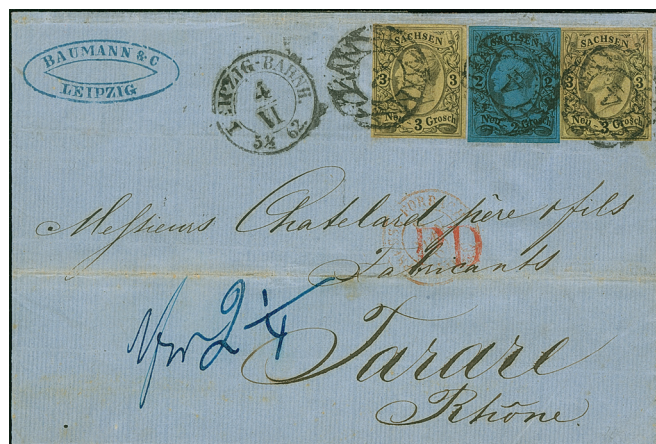 BAUMANN & C
LEIPZIG
LEIPZIG-BAHNH.
4
VI
5½
62
SACHSEN
3 3
Neu 3 Grosch
SACHSEN
2 2
Neu 2 Grosch
SACHSEN
3 3
Neu 3 Grosch
Messieurs Chatelard père & fils
PD
Fabricants
2 1/4
Tarare
Rhône.